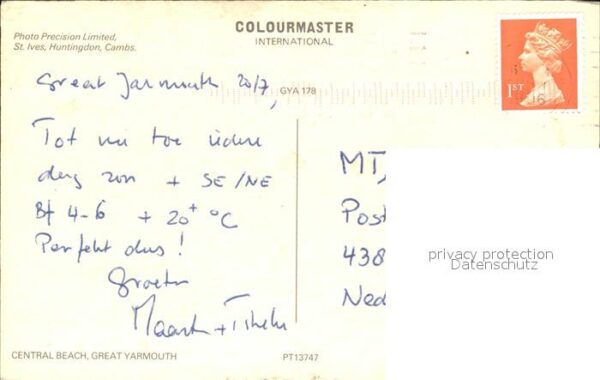 Photo Precision Limited,
St. Ives, Huntingdon, Cambs.
COLOURMASTER
INTERNATIONAL
1ST
Great Jarmouth 20/7,
GYA 178
Tot nu toe iedere
dag zon + SE/NE
Bf 4-6 + 20+ °C
Perfekt dus!
Groeten
Maarten +
MT,
Post
438
Ned
privacy protection
Datenschutz
CENTRAL BEACH, GREAT YARMOUTH
PT13747